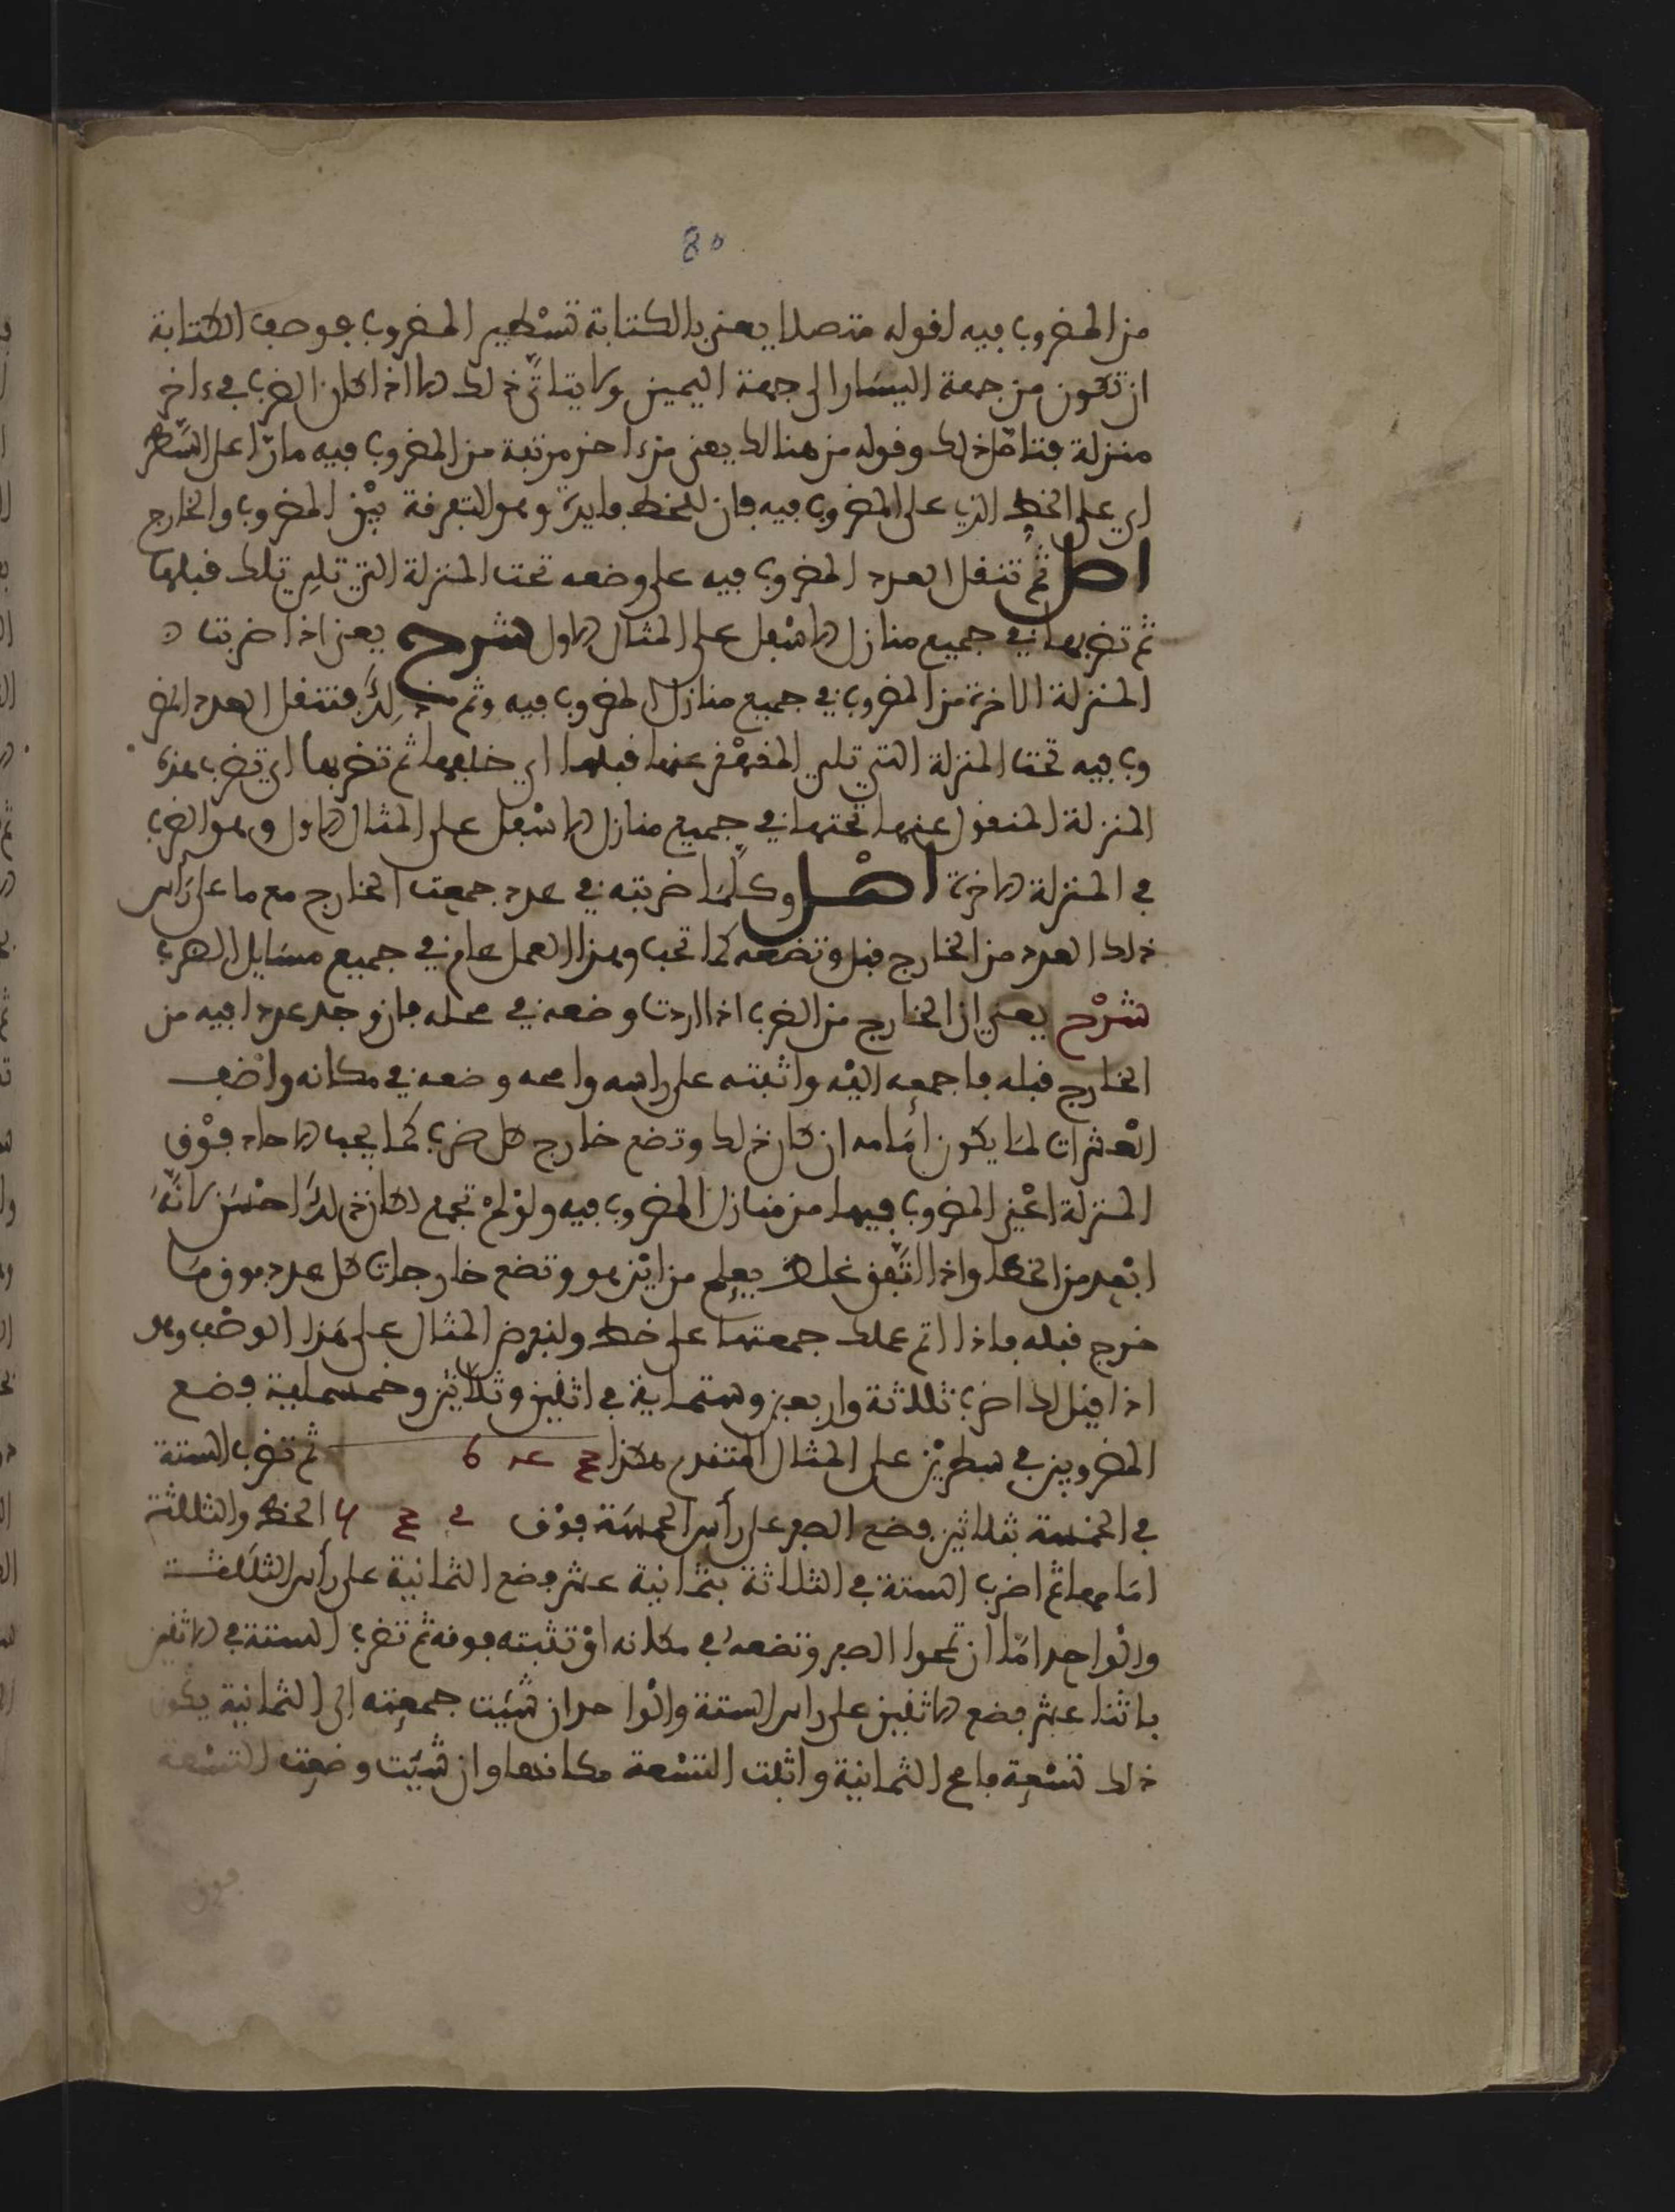 80
من المضروب فيه لقوله متصلا يعني بالكتابة تسْطير المضروب بوصف الكتابة
ان تكون من جهة اليسار الى جهة اليمين ولا يتاتّى ذلك الا اذا كان الضرب في ءاخر
منزلة فتامّل ذلك وقوله من هنالك يعني من ءاخر مرتبة من المضروب فيه مارّا على السَّطر
اي على الخط الذي على المضروب فيه فان للخط فايدة وهو التفرفة بيْن المضروب والخارج
اصل ثم تنقل العدد المضروب فيه على وضعه تحت المنزلة التي تلي تلك قبلها
ثم تضربها في جميع منازل الاسْفل على المثال الاول شرح يعني اذا ضربت
المنزلة الاخرة من المضروب في جميع منازل المضروب فيه وتم ذلك فتنقل العدد المضر
وب فيه تحت المنزلة التي تلي عنها قبلها اي خلفها ثم تضربها اي تضرب هذه
المنزلة المنقول عنها تحتها في جميع منازل الاسْفل على المثال الاول وهو الضرب
في المنزلة الاخرة اصْل وكلّما ضربته في عدد جمعت الخارج مع ما على رَأس
ذلك العدد من الخارج قبل وتضعه كما تحب وهذا العمل عام في جميع مسَايل الضرب
شرْح يعني ان الخارج من الضرب اذا اردت وضعه في محله فان وجد عددا فيه من
الخارج قبله فاجمعه اليْه واثبته على راسه وامحه وضعه في مكانه واضف
العْشرات لمَا يكون أمَامه ان كان ذلك وتضع خارج كل ضرب كما يجب الاحاد فوْق
المنزلة اعْني المضروب فيها من منازل المضروب فيه ولوْ لمْ تجمع لكان ذلك احْسَن لانَّه
ابْعد من الخطا واذا اتّفق غلط يعلم من ايْن هو وتضع خارجات كل عدد فوق مَا
خرج قبله فاذا تم عملك جمعتها على خط ولنفرض المثال على هَذا الوصْف وهو
اذا قيل لك اضرب ثلاثة واربعين وستماية في اثنين وثلاثين وخمسماية فضع
المضروبين في سطريْن على المثال المتقدم هكذا ثم تضرب الستة
في الخمْسة بثلاثين فضع الصفر على رأس الخمسَة فوْق الخط والثلاثة
امَامها ثم اضرب الستة في الثلاثة بثمانية عشر فضع الثمانية على رأس الثلاثة
والْواحد امّا ان تمحوا الصفر وتضعه في مكانه اوْ تثبته فوقه ثم تضرب الستة في الاثنين
باثنا عشر فضع الاثنين على راس الستة والْواحد ان شيَت جمعته الى الثمانية يكون
ذلك تسْعة فامح الثمانية واثبت التسْعة مكانها وان شيَت وضعت التسْعة
فوق